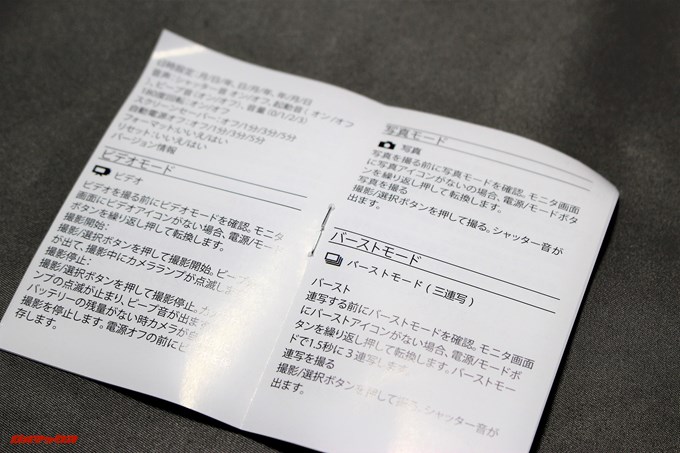 日時設定：月/日/年、日/月/年、年/月/日
音声：シャッター音 オン/オフ、起動音（オン/オフ
）、ビープ音（オン/オフ）、音量（0/1/2/3）
180度回転：オン/オフ
スクリーンセーバー：オフ/1分/3分/5分
自動電源オフ：オフ/1分/3分/5分
フォーマット:いいえ/はい
リセット：いいえ/はい
バージョン情報
ビデオモード
ビデオ
ビデオを撮る前にビデオモードを確認。モニタ
画面にビデオアイコンがない場合、電源/モー
ボタンを繰り返し押して転換します。
撮影開始：
撮影/選択ボタンを押して撮影開始。ビープ
が出て、撮影中にカメラランプが点滅し
撮影停止：
撮影/選択ボタンを押して撮影停止。カ
ンプの点滅が止まり、ビープ音が出ま
バッテリーの残量がない時カメラが
撮影を停止します。電源オフの前にビ
存します。
写真モード
写真
写真を撮る前に写真モードを確認。モニタ画面
に写真アイコンがないの場合、電源/モードボタ
ンを繰り返し押して転換します。
写真を撮る
撮影/選択ボタンを押して撮る。シャッター音が
出ます。
バーストモード
バーストモード（三連写）
バースト
連写する前にバーストモードを確認。モニタ画面
にバーストアイコンがない場合、電源/モードボ
タンを繰り返し押して転換します。バーストモー
ドで1.5秒に３連写します。
連写を撮る
撮影/選択ボタンを押して撮る。シャッター音が
出ます。